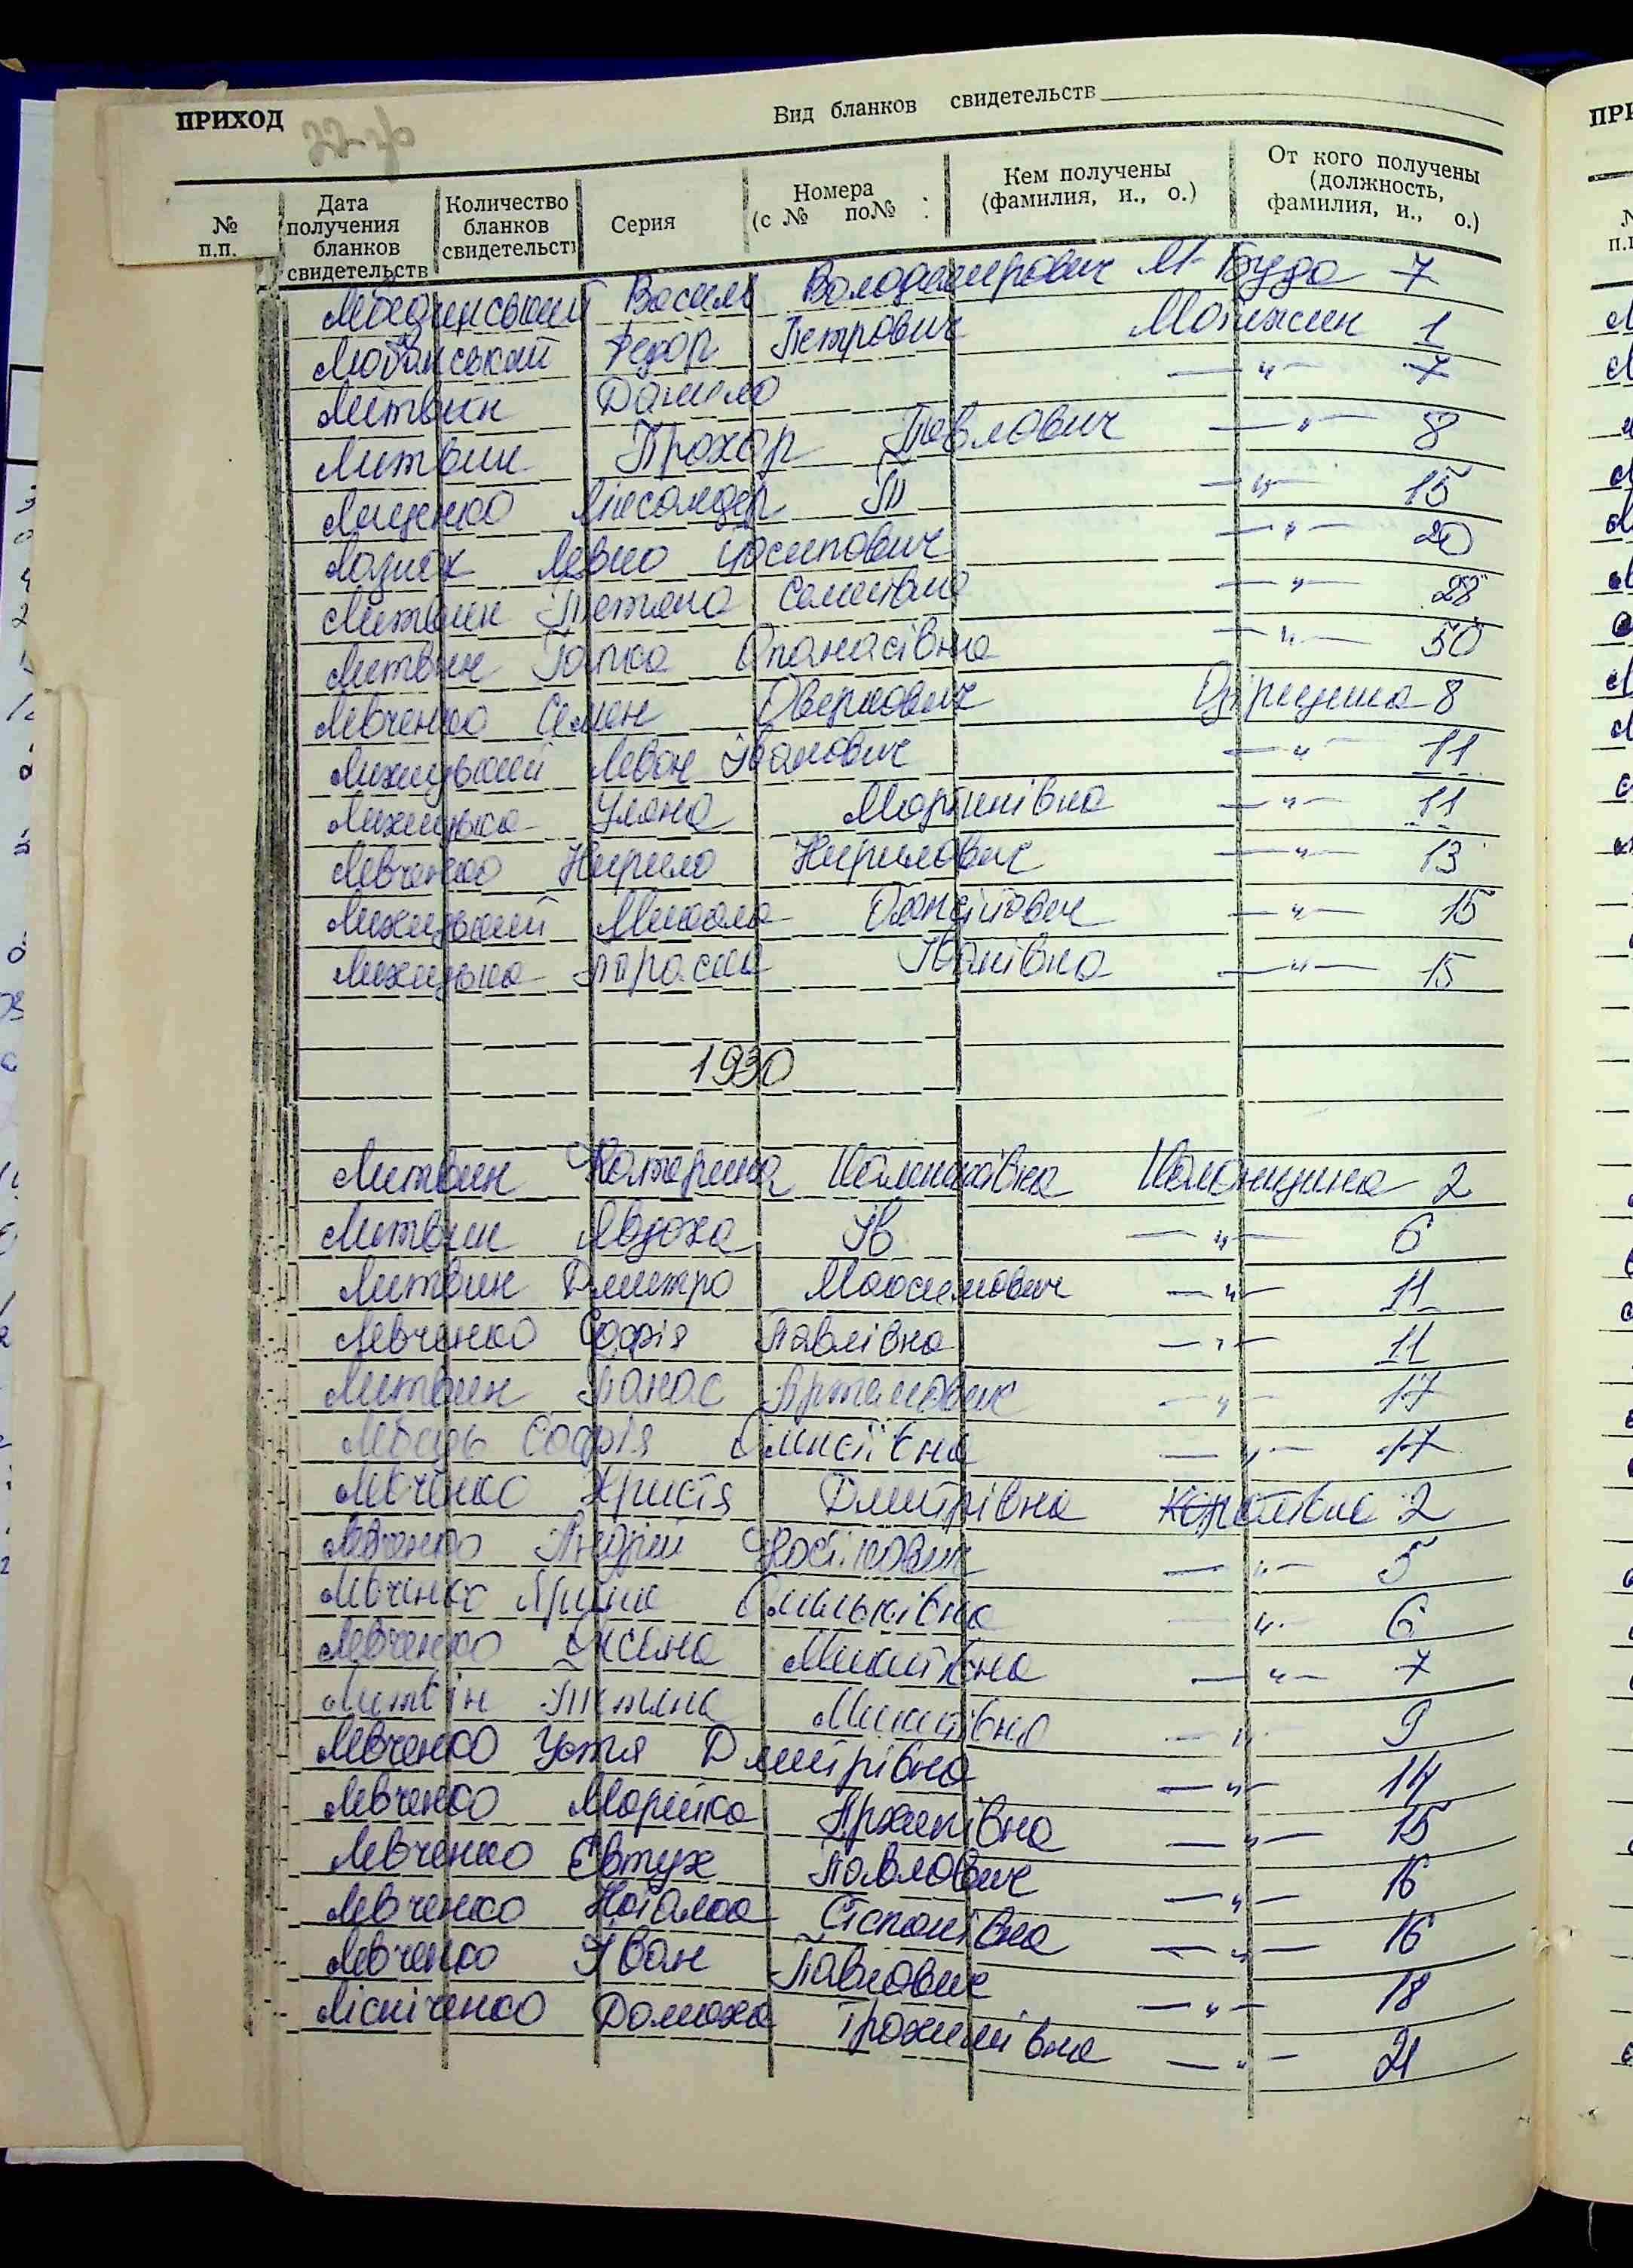 ПРИХОД
Вид бланков свидетельств
№ п.п.
Дата получения бланков свидетельств
Количество бланков свидетельств
Серия
Номера (с № по№ :
Кем получены (фамилия, и., о.)
От кого получены (должность, фамилия, и., о.)
Василь Володимирович М-Буда 7
Любанський Федор Петрович Мотижин 1
Литвин Данило — " — 7
Литвин Прохор Павлович — " — 8
Лященко П — " — 15
Левко Йосипович — " — 20
Литвин Тетяна Семенівна — " — 28
Литвин Гапка Опанасівна — " — 50
Левченко Семен Оверкович 8
Лихицький Левон Іванович — " — 11
Лихицька Уляна Мартинівна — " — 11
Левченко Кирило Кирилович — " — 13
Лихицький Микола — " — 15
Лихицька Параска Іванівна — " — 15
1930
Литвин Катерина 2
Литвин Явдоха Ів — " — 6
Литвин Дмитро Максимович — " — 11
Левченко Софія Павлівна — " — 11
Литвин Панас Артемович — " — 17
Лебедь Софія Олексіївна — " — 17
Левченко Христя Дмитрівна 2
Левченко Андрій — " — 5
Левченко — " — 6
Левченко Оксана Микитівна — " — 7
Литвін Тетяна Микитівна — " — 9
Левченко Устя Дмитрівна — " — 14
Левченко Марійка Архипівна — " — 15
Левченко Євтух Павлович — " — 16
Левченко Наталка Степанівна — " — 16
Левченко Іван Павлович — " — 18
Домаха Трохимівна — " — 21
ПРИ